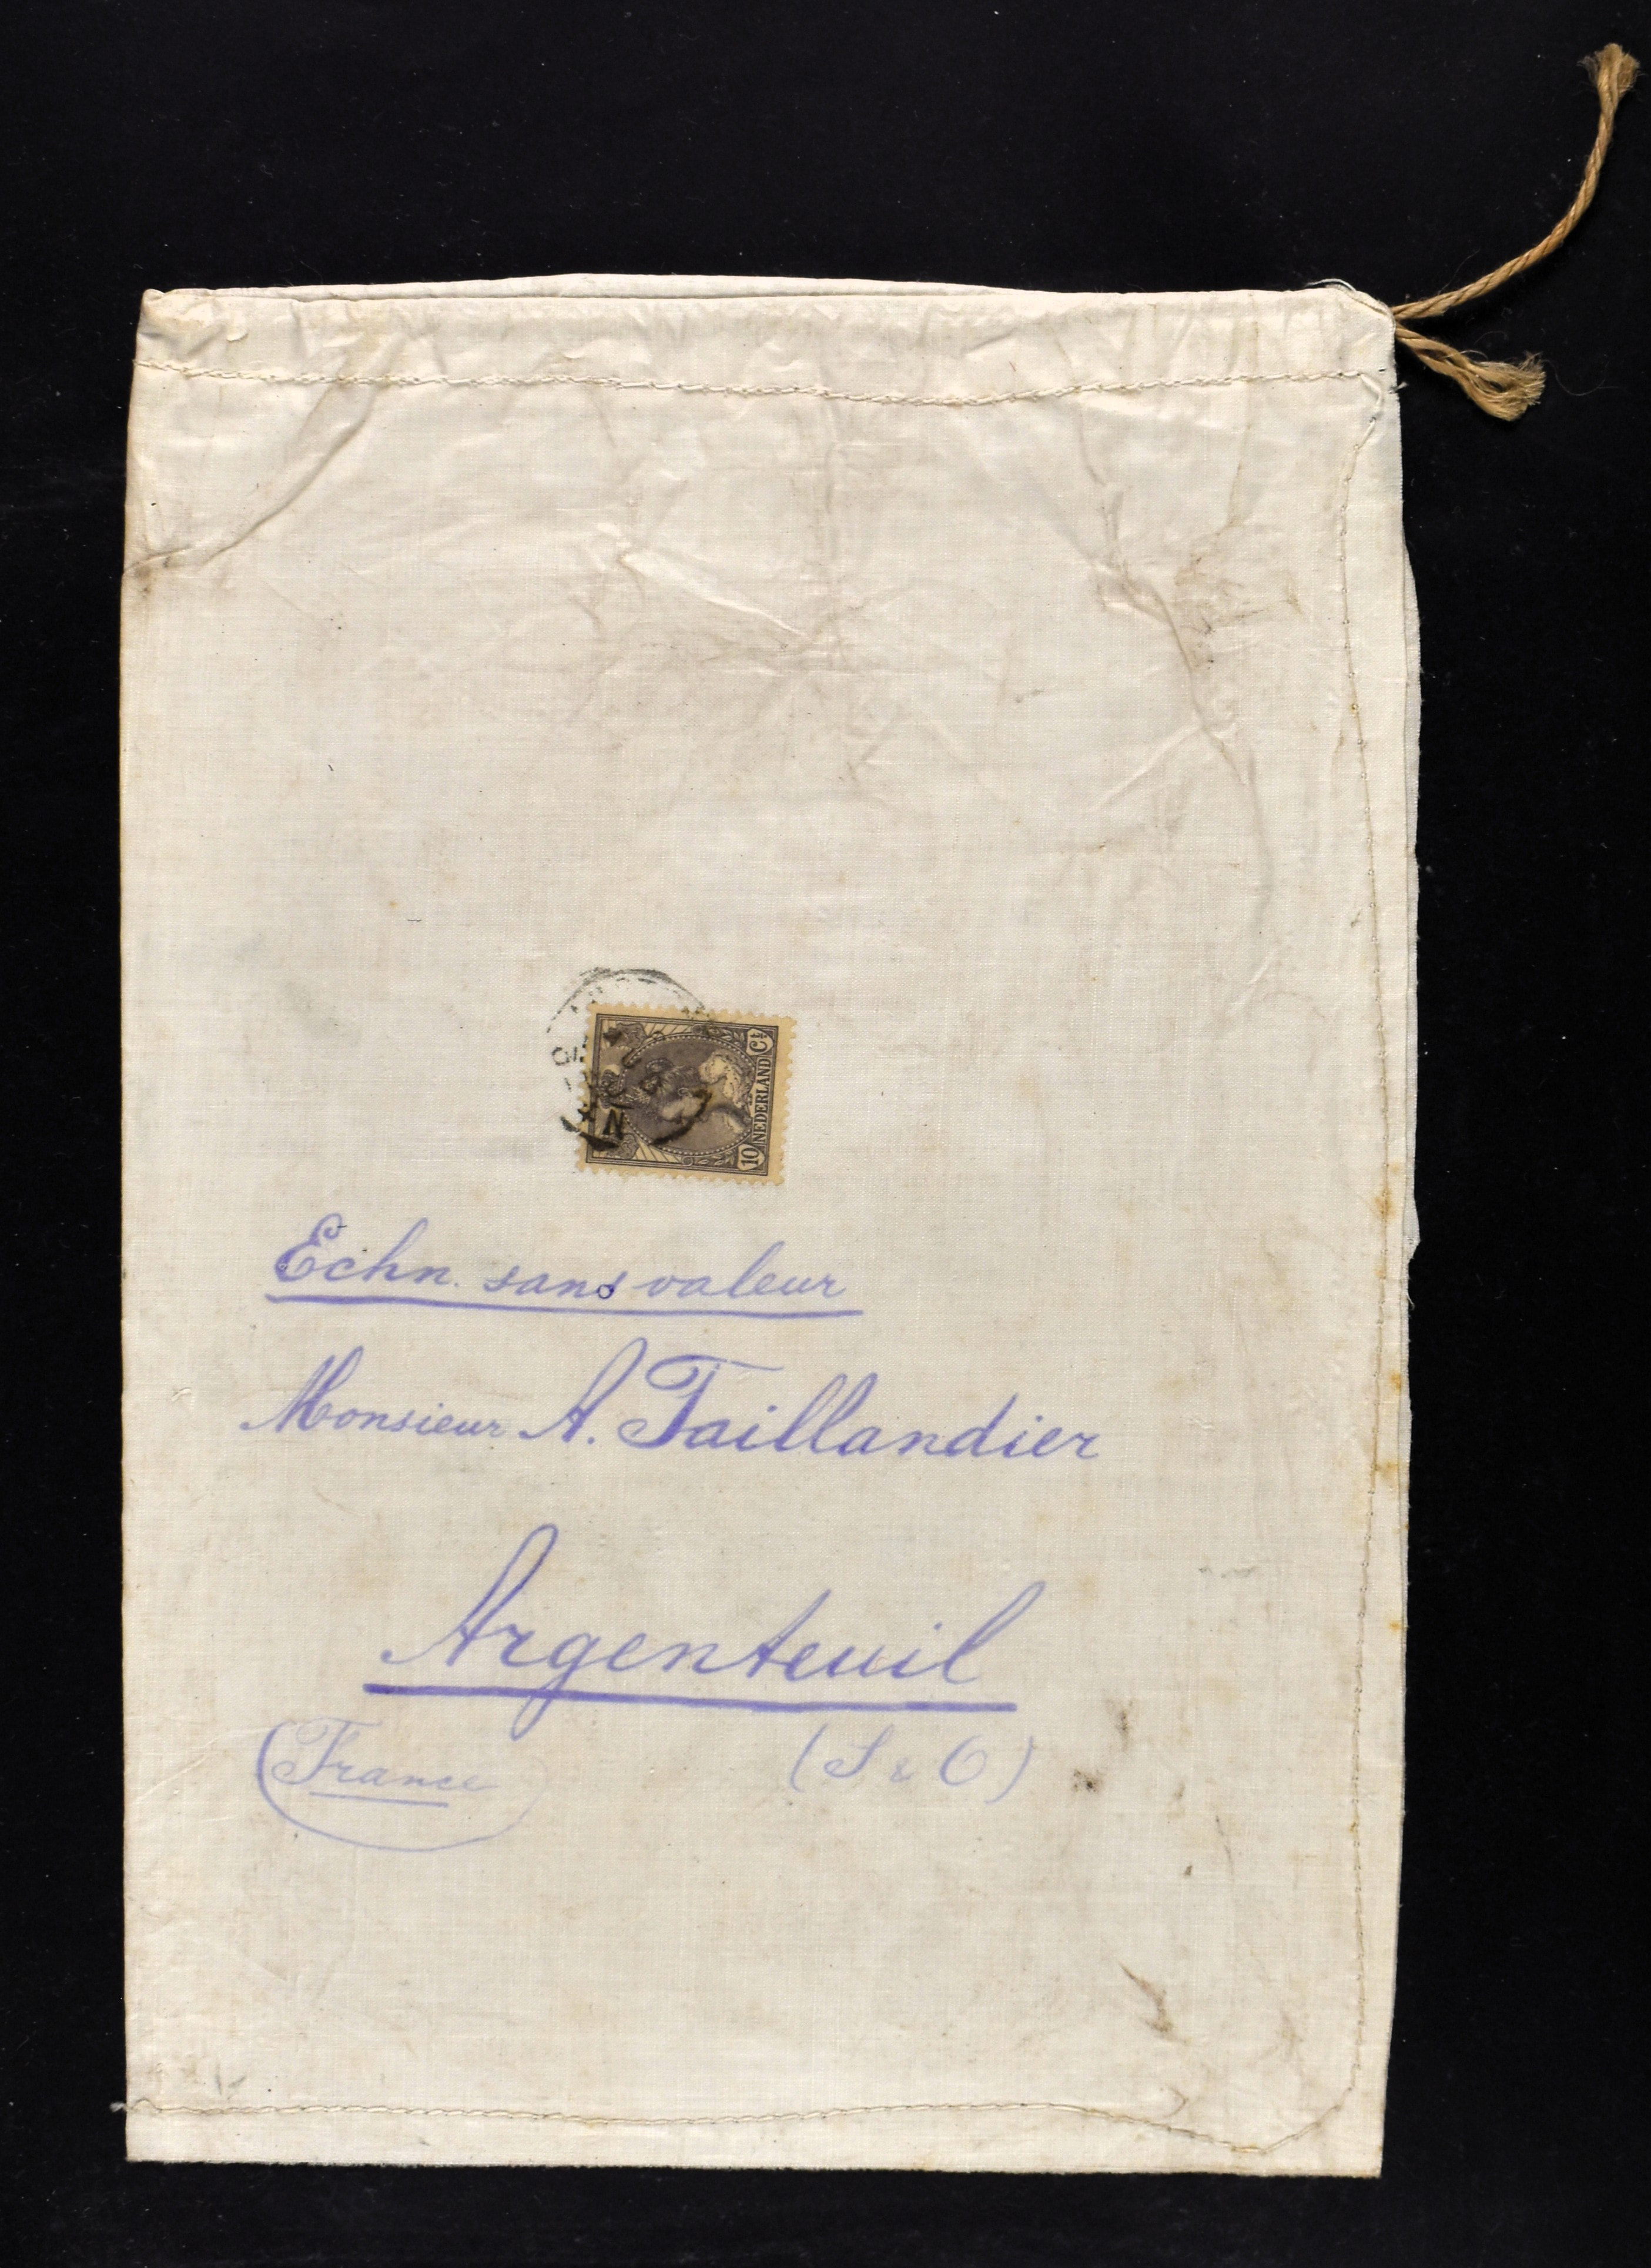 10 NEDERLAND Ct
Echn. sans valeur
Monsieur A. Taillandier
Argenteuil
(France) (S & O)